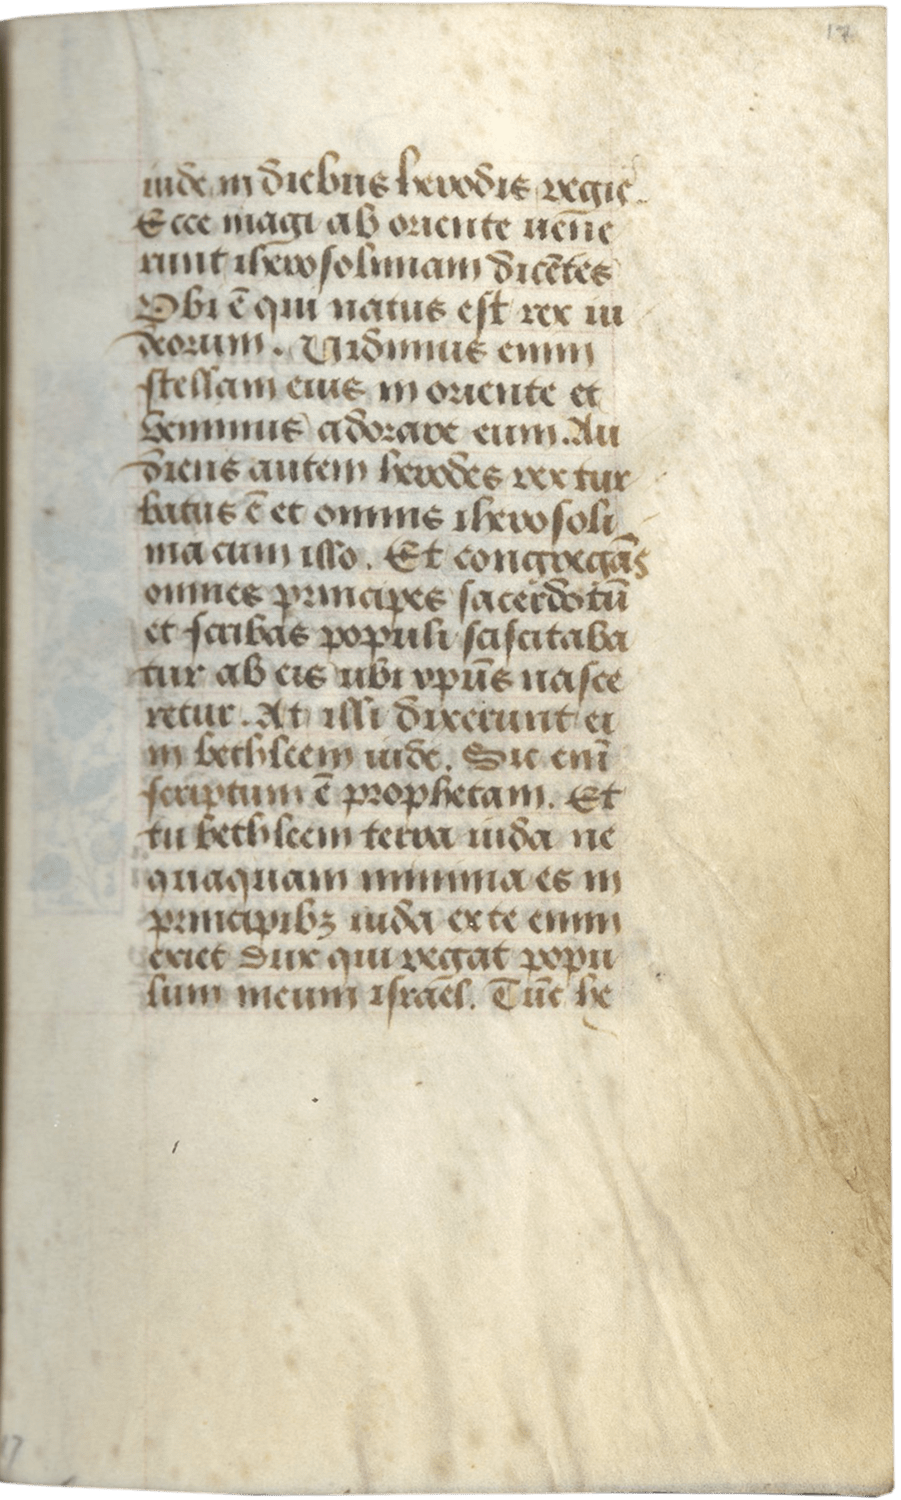 17
iude in diebus herodis regis.
Ecce magi ab oriente uene
runt iherosolimam dicētes
Vbi ē qui natus est rex iu
deorum. Vidimus enim
stellam eius in oriente et
venimus adorare eum. Au
diens autem herodes rex tur
batus ē et omnis iherosoli
ma cum illo. Et congregās
omnes principes sacerdotū
et scribas populi sciscitaba
tur ab eis ubi xpūs nasce
retur. At illi dixerunt ei
in bethleem iude. Sic enī
scriptum ē prophetam. Et
tu bethleem terra iuda ne
quaquam minima es in
principibꝫ iuda ex te enim
exiet dux qui regat popu
lum meum israel. Tūc he
17